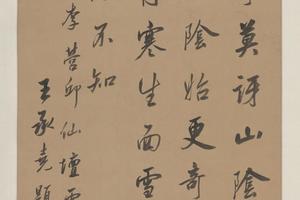 莫訝山陰
陰始更奇
寒生面雪
不知
李營邱仙壇
王承堯題